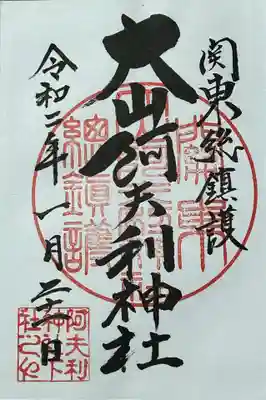 関東総鎮護
大山阿夫利神社
令和二年一月二十一日
阿夫利
神社下
社之印